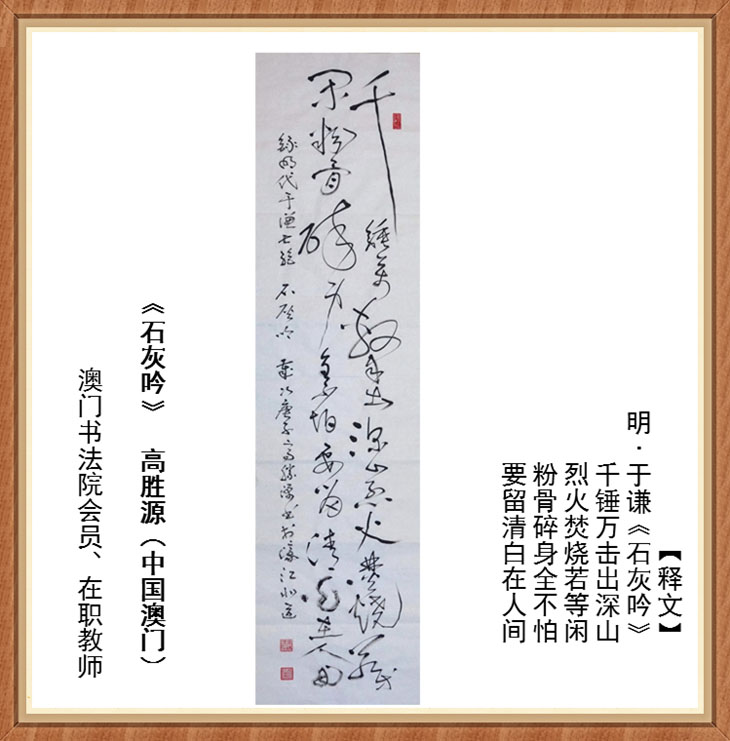 【释文】
明·于谦《石灰吟》
千锤万击出深山
烈火焚烧若等闲
粉骨碎身全不怕
要留清白在人间
千錘萬擊出深山烈火焚燒若等
闲粉骨碎身全不怕要留清白在人间
錄明代于谦七絕 石灰吟 歲次庚子
《石灰吟》 高胜源（中国澳门）
澳门书法院会员、在职教师